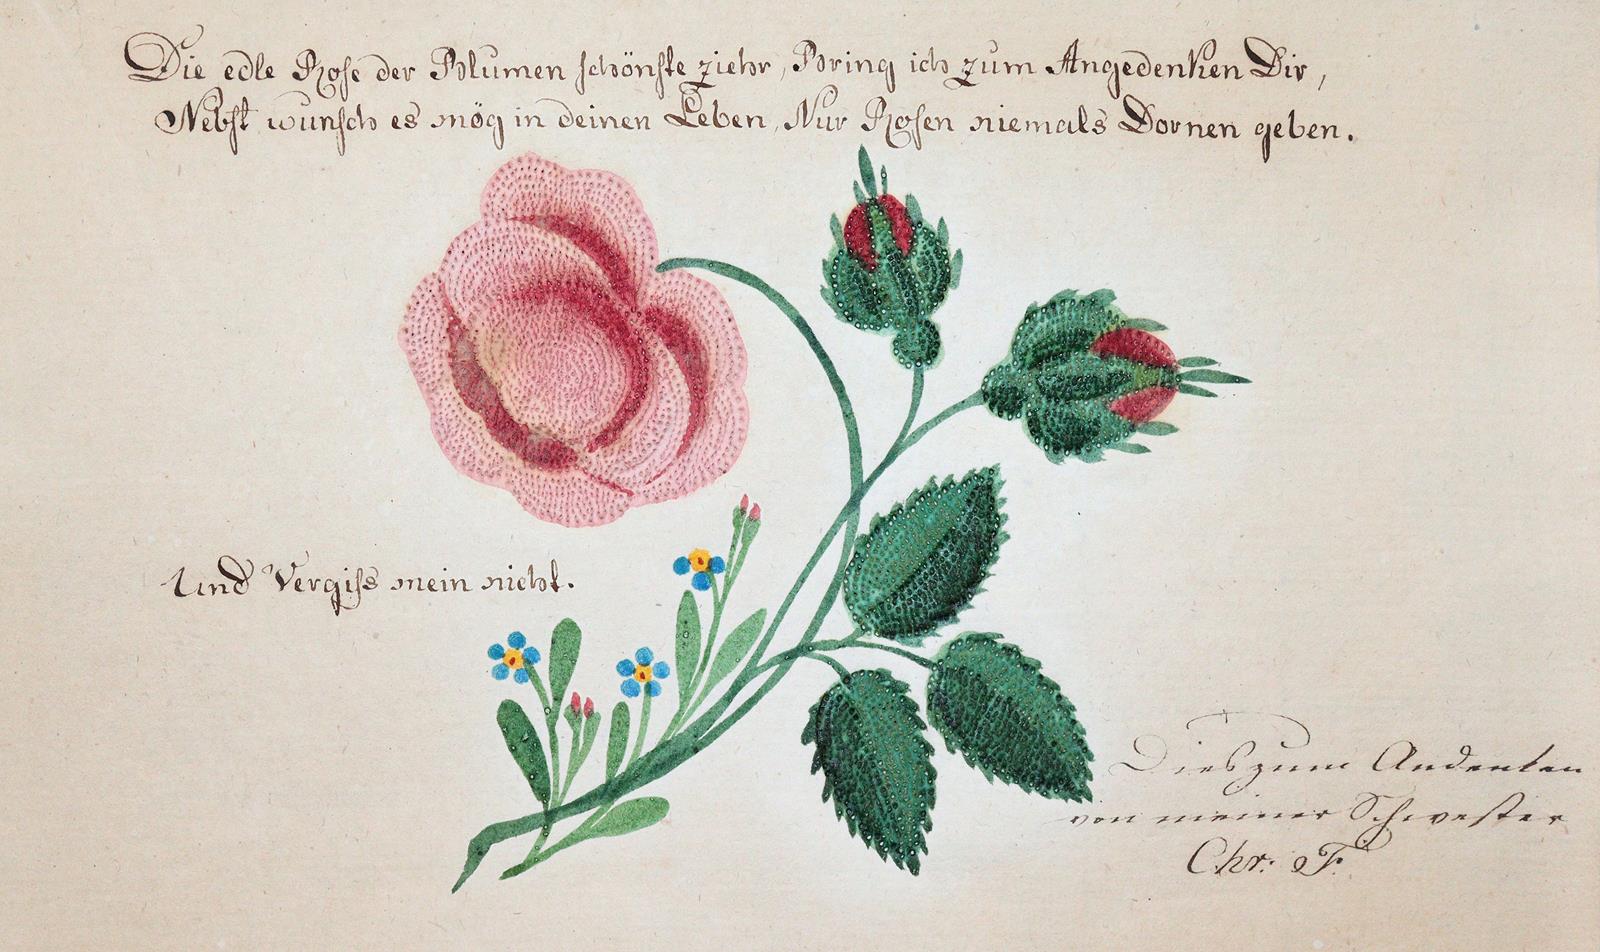 Die edle Rose der Blumen schönste ziehr, Bring ich zum Angedenken Dir,
Nebst wunsch es mög in deinen Leben, Nur Rosen niemals Dornen geben.
Und Vergiss mein nicht.
Dies zum Andenken
von meiner Schwester
Chr: F.